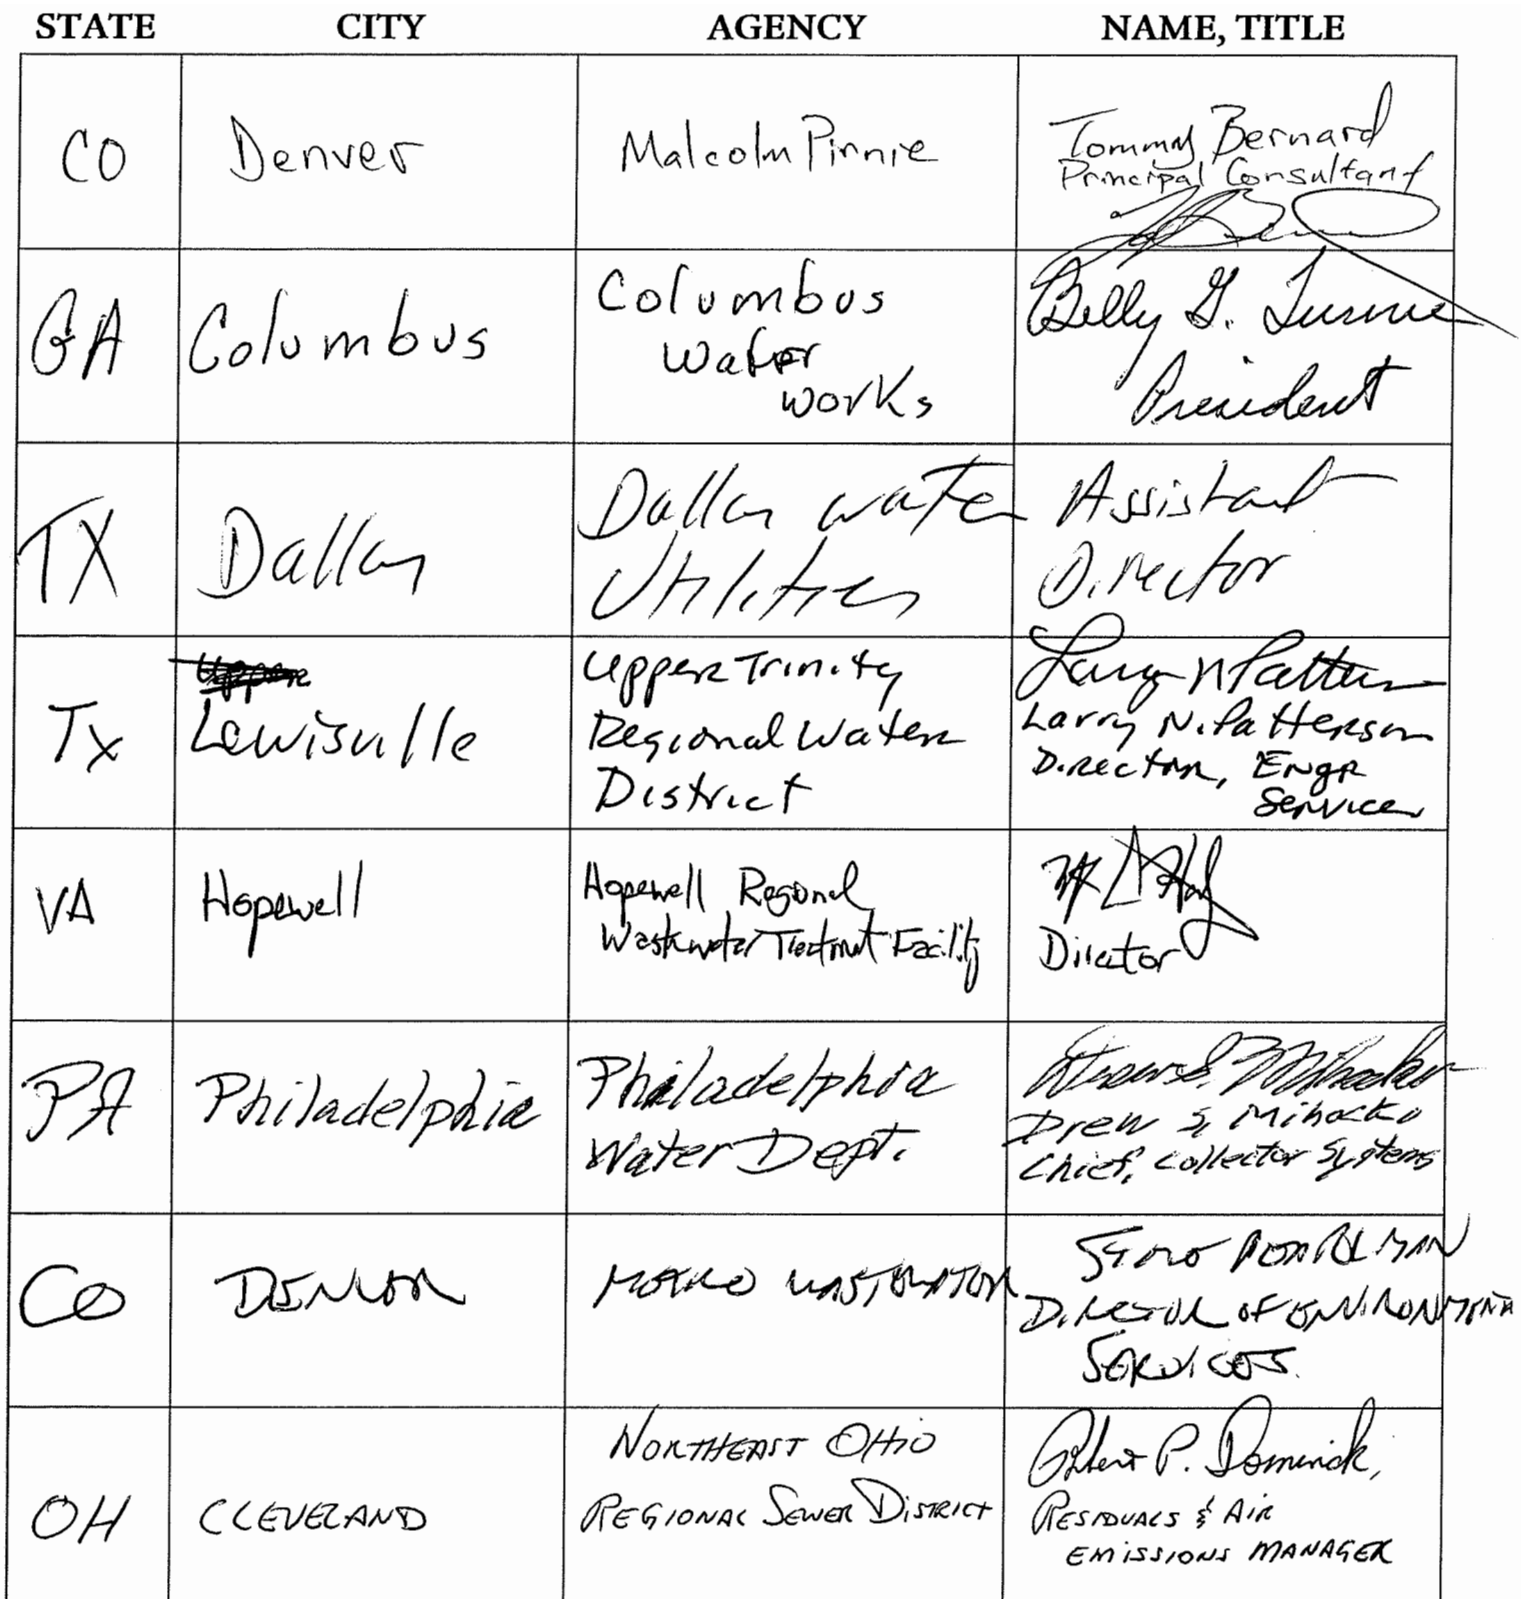 STATE CITY AGENCY NAME, TITLE
CO Denver Malcolm Pirnie Tommy Bernard
Principal Consultant
GA Columbus Columbus
Water
Works
Billy G. Turner
President
TX Dallas Dallas Water
Utilities
Assistant
Director
Tx Lewisville Upper Trinity
Regional Water
District
Larry N Patterson
Larry N. Patterson
Director, Engr
Services
VA Hopewell Hopewell Regional
Wastewater Treatment Facility
Director
PA Philadelphia Philadelphia
Water Dept.
Drew S. Mihocko
Drew S. Mihocko
Chief, Collector Systems
CO DENVER METRO WASTEWATER
STEVE PEARLMAN
DIRECTOR OF ENVIRONMENTAL
SERVICES.
OH CLEVELAND NORTHEAST OHIO
REGIONAL SEWER DISTRICT
Robert P. Dominick,
RESIDUALS & AIR
EMISSIONS MANAGER